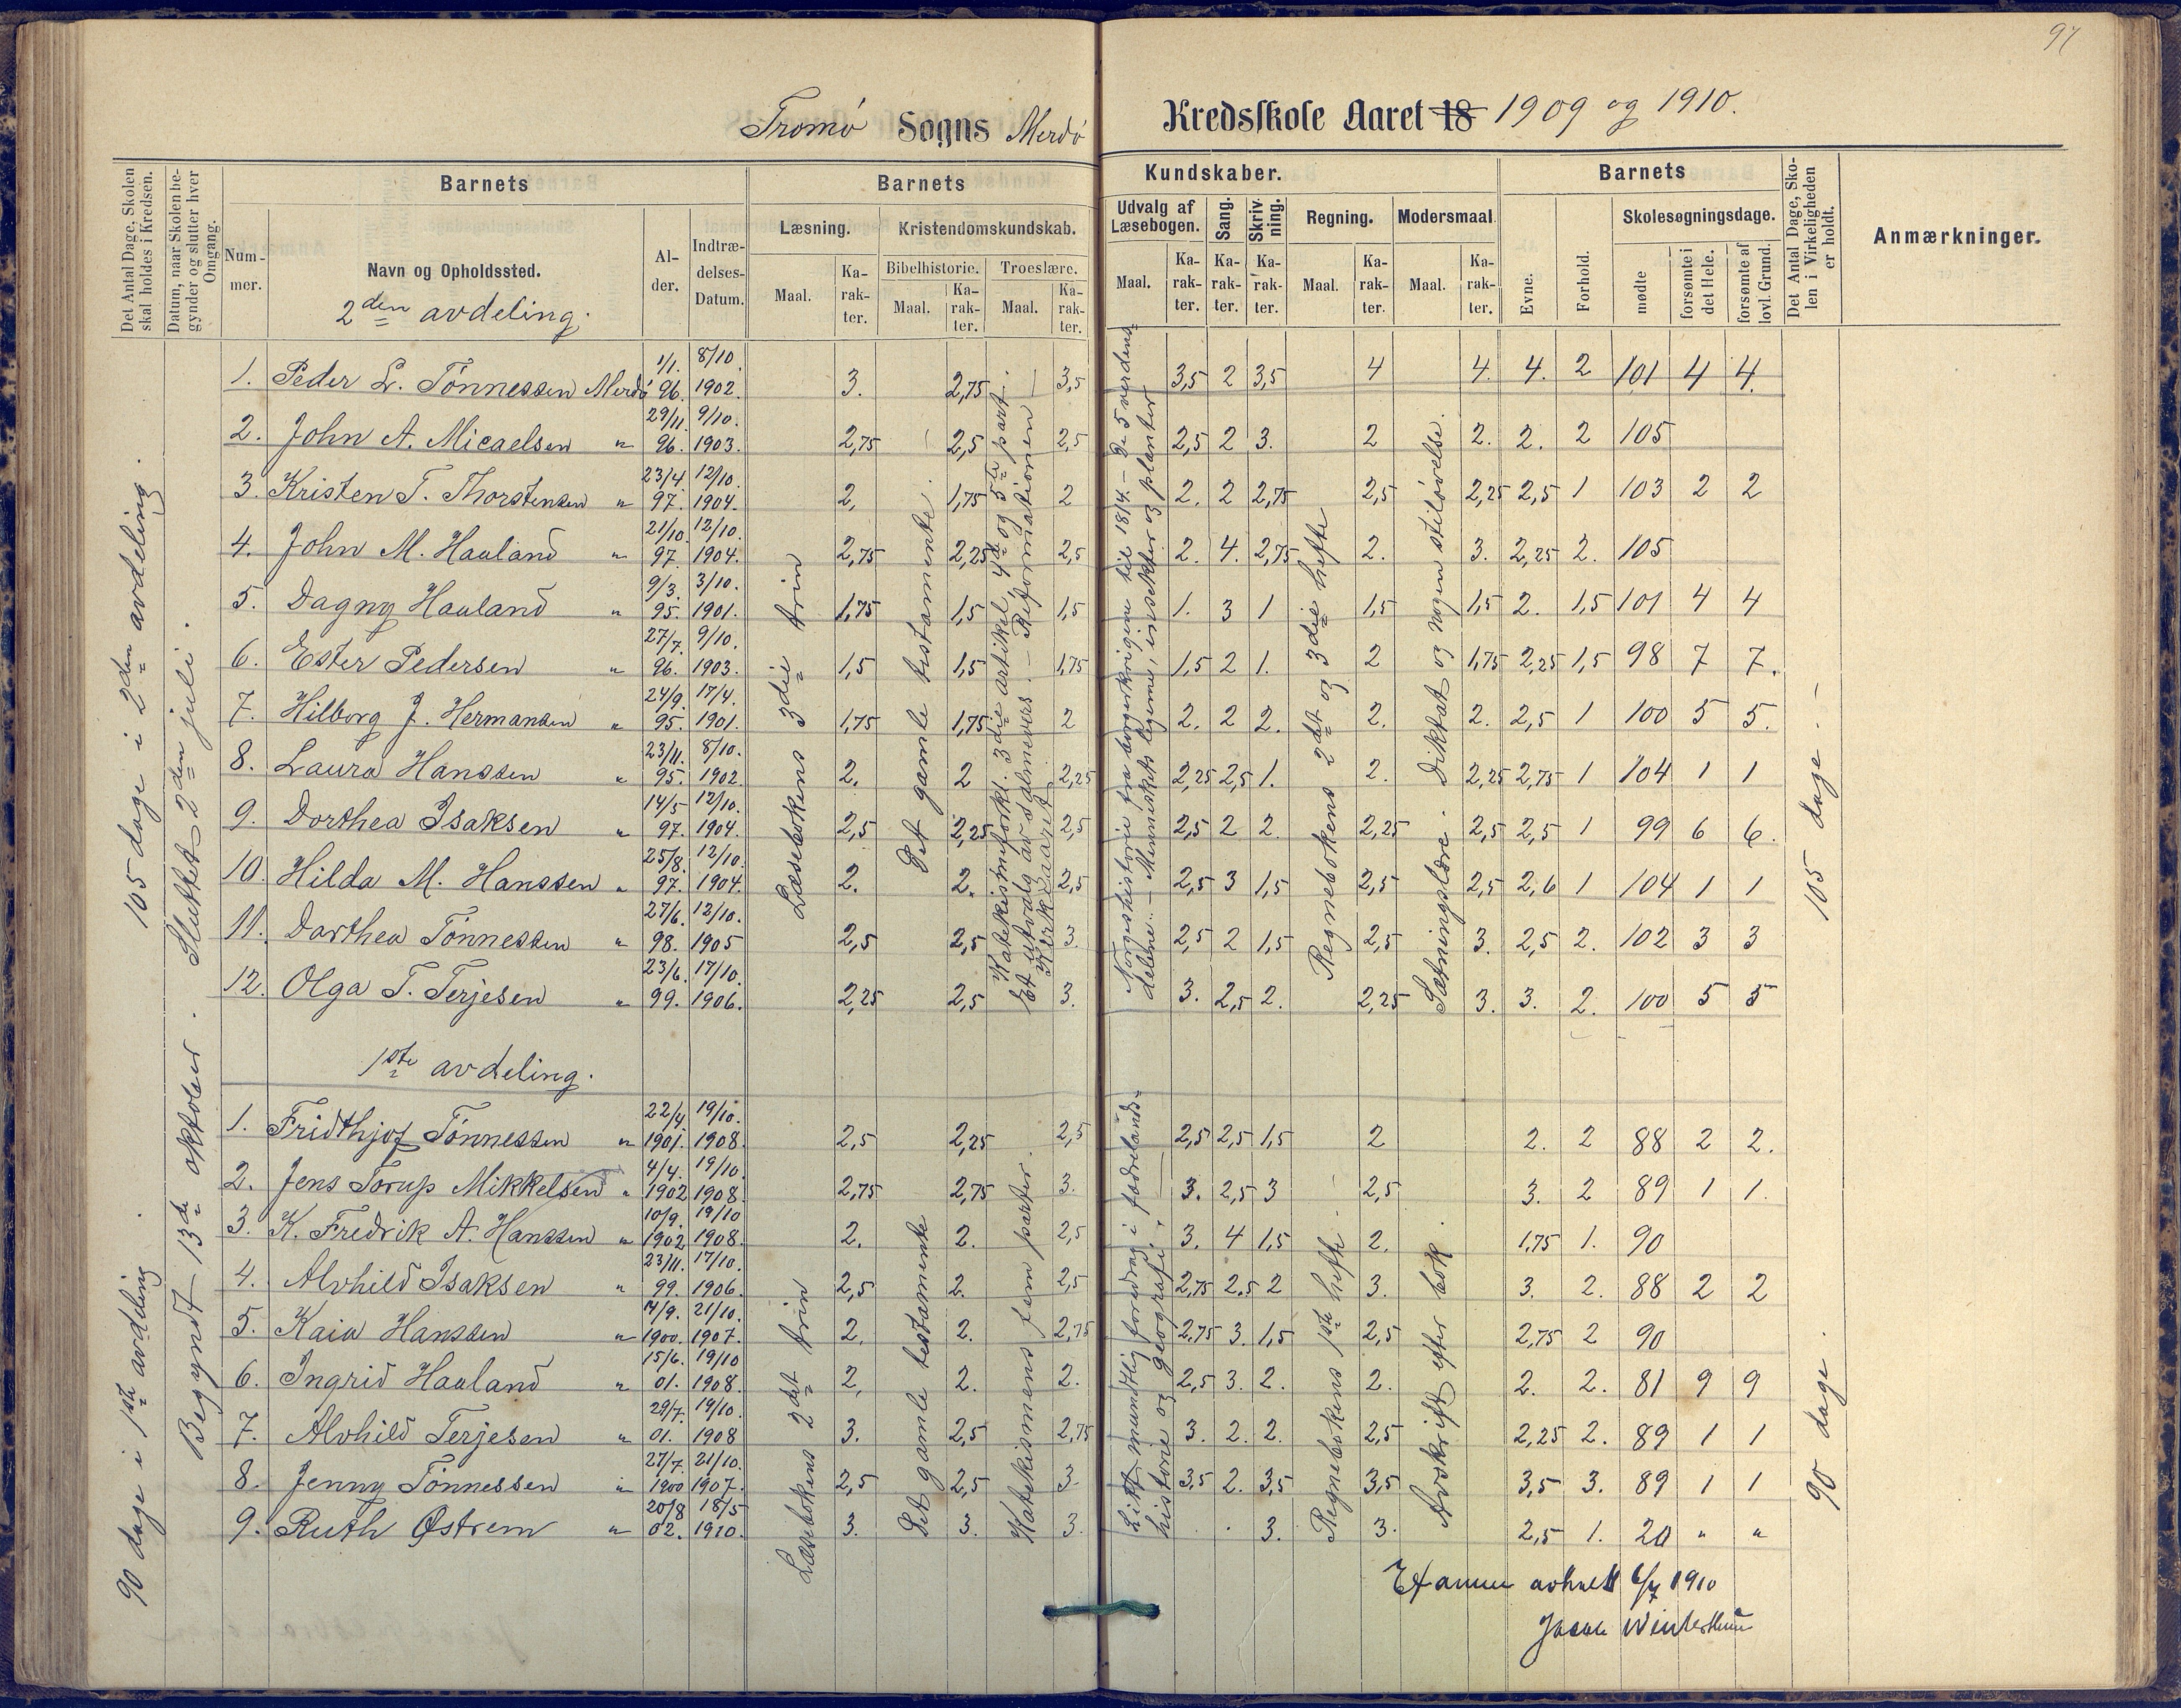 97
Tromö Sogns Merdö Kredsskole Aaret 18 1909 og 1910.
Det Antal Dage, Skolen skal holdes i Kredsen.
Datum, naar Skolen begynder og slutter hver Omgang.
Barnets
Nummer.
Navn og Opholdssted.
Alder.
Indtrædelses-Datum.
Barnets Kundskaber.
Læsning.
Maal.
Karakter.
Kristendomskundskab.
Bibelhistorie.
Maal.
Karakter.
Troeslære.
Maal.
Karakter.
Udvalg af Læsebogen.
Maal.
Karakter.
Sang.
Karakter.
Skrivning.
Karakter.
Regning.
Maal.
Karakter.
Modersmaal.
Maal.
Karakter.
Barnets
Evne.
Forhold.
Skolesøgningsdage.
mødte
forsømte i det Hele.
forsømte af lovl. Grund.
Det Antal Dage, Skolen i Virkeligheden er holdt.
Anmærkninger.
105 dage i 2den avdeling.
90 dage i 1ste avdeling.
Begyndt 13de oktober. Sluttet 2den juli.
2den avdeling.
1. Peder L. Tönnessen Merdö 1/1. 96. 8/10. 1902. 3. 2,75 3,5 3,5 2 3,5 4 4. 4. 2 101 4 4.
2. John A. Micaelsen " 29/11. 96. 9/10. 1903. 2,75 2,5 2,5 2,5 2 3. 2 2. 2. 2 105
3. Kristen T. Thorstensen " 23/4 97. 12/10. 1904. 2. 1,75 2 2. 2 2,75 2,5 2,25 2,5 1 103 2 2
4. John M. Hauland " 21/10. 97. 12/10. 1904. 2,75 2,25 2,5 2. 4. 2,75 2. 3. 2,25 2. 105
5. Dagny Hauland " 9/3. 95. 3/10. 1901. 1,75 1,5 1,5 1. 3 1 1,5 1,5 2. 1,5 101 4 4
6. Ester Pedersen " 27/7. 96. 9/10. 1903. 1,5 1,5 1,75 1,5 2 1. 2 1,75 2,25 1,5 98 7 7.
7. Hilborg J. Hermansen " 24/9. 95. 17/4. 1901. 1,75 1,75 2 2. 2 2. 2. 2. 2,5 1 100 5 5.
8. Laura Hanssen " 23/11. 95. 8/10. 1902. 2. 2 2,25 2,25 2,5 1. 2. 2,25 2,75 1 104 1 1
9. Dorthea Isaksen " 14/5 97. 12/10. 1904. 2,5 2,25 2,5 2,5 2 2. 2,25 2,5 2,5 1 99 6 6.
10. Hilda M. Hanssen " 25/8. 97. 12/10. 1904. 2. 2. 2,5 2,5 3 1,5 2,5 2,5 2,6 1 104 1 1
11. Dorthea Tönnessen " 27/6. 98. 12/10. 1905 2,5 2,5 3. 2,5 2 1,5 2,5 3. 2,5 2. 102 3 3
12. Olga T. Terjesen " 23/6. 99. 17/10. 1906. 2,25 2,5 3. 3. 2,5 2. 2,25 3. 3. 2. 100 5 5
Læsebokens 3die trin
Det gamle testamente.
Katekismeforkl. 3die artikel, 4de og 5te part.
Et utvalg av salmevers. – Reformationen
Kirkeaaret
Norgeshistorie fra borgerkrigene til 1814. – De 5 verdens-
delene. – Menneskets legeme, insekter og planter
Regnebokens 2det og 3die hefte
Sætningslære. Diktat og nogen stiløvelse.
105 dage. –
1ste avdeling.
1. Fridthjof Tönnessen " 22/4. 1901. 19/10. 1908. 2,5 2,25 2,5 2,5 2,5 1,5 2 2. 2 88 2 2.
2. Jens Torup Mikkelsen " 4/4. 1902 19/10. 1908. 2,75 2,75 3. 3. 2,5 3 2,5 3. 2 89 1 1.
3. K. Fredrik A. Hanssen " 10/9. 1902 19/10 1908. 2. 2. 2,5 3. 4 1,5 2. 1,75 1. 90
4. Alvhild Isaksen " 23/11. 99. 17/10. 1906. 2,5 2. 2,5 2,75 2.5 2 3. 3. 2. 88 2 2
5. Kaia Hanssen " 14/9. 1900. 21/10. 1907. 2. 2. 2,75 2,75 3. 1,5 2,5 2,75 2 90
6. Ingrid Hauland " 15/6. 01. 19/10 1908. 2. 2. 2. 2,5 3. 2. 2. 2. 2. 81 9 9
7. Alvhild Terjesen " 29/7. 01. 19/10. 1908 3. 2,5 2,75 3. 2. 2. 2,5 2,25 2. 89 1 1
8. Jenny Tönnessen " 27/7. 1900 21/10. 1907. 2,5 2,5 3. 3,5 2. 3,5 3,5 3,5 3. 89 1 1
9. Ruth Østrem " 20/8 02. 18/5 1910. 3. 3. 3. 3. 3. 2,5 1. 20 " "
Læsebokens 2det trin
Det gamle testamente
Katekismens fem parter.
Litt mundtlig foredrag i fædrelands-
historie og geografi.
Regnebokens 1ste hefte.
Avskrift efter bok.
90 dage.
Examen avholdt 6/7 1910
Jacob